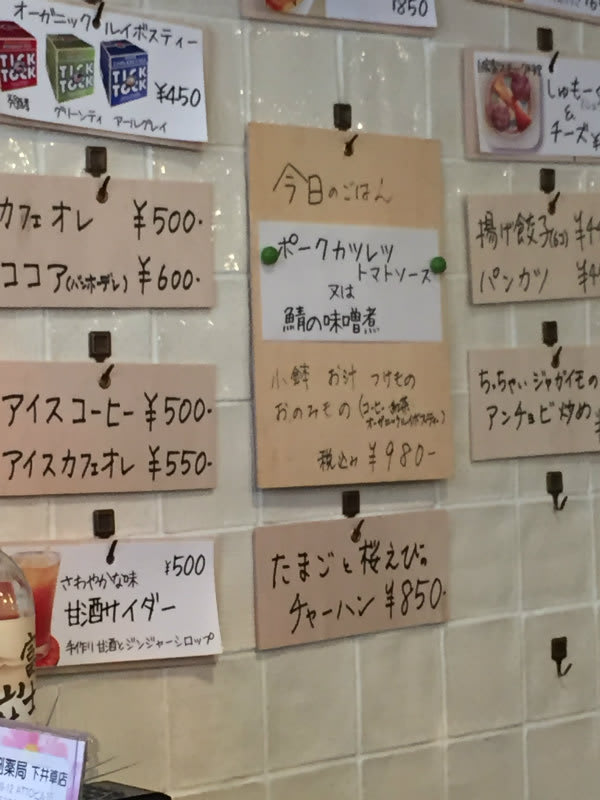 オーガニック ルイボスティー
TICK TOCK
TICK TOCK
TICK TOCK
¥450
発酵
グリーンティ アールグレイ
カフェオレ ¥500-
ココア(バンホーテン) ¥600-
アイスコーヒー ¥500-
アイスカフェオレ ¥550-
¥500
さわやかな味
甘酒サイダー
手作り甘酒とジンジャーシロップ
薬局 下井草店
¥850
今日のごはん
ポークカツレツ
トマトソース
又は
鯖の味噌煮
小鉢 お汁 つけもの
おのみもの(コーヒー・紅茶
オーガニックルイボスティー)
税込み ¥980-
たまごと桜えびの
チャーハン ¥850-
しゅもーく
&
チーズ ¥
揚げ餃子(6コ) ¥4
パンカツ ¥4
ちっちゃいジャガイモの
アンチョビ炒め